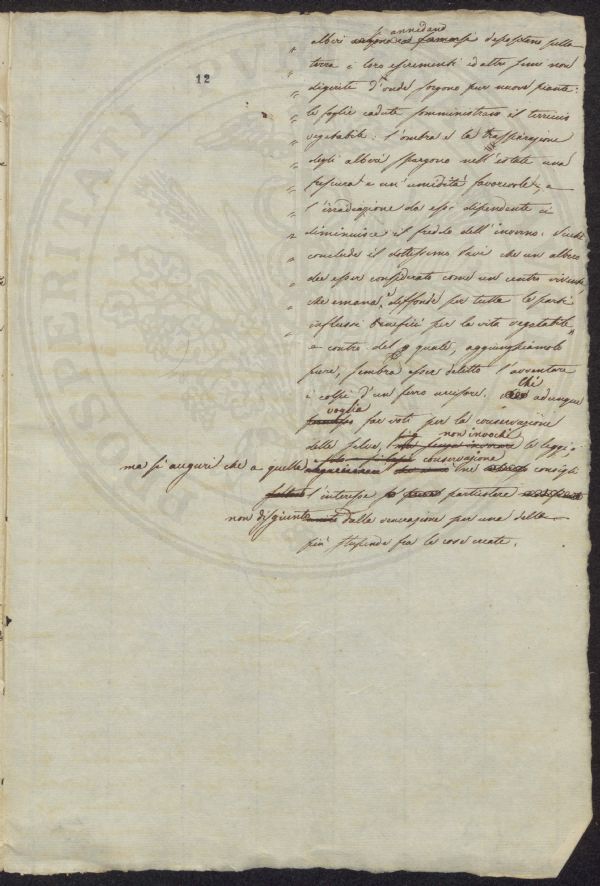 12
si annidano
" alberi depositano sulla
" terra i loro escrementi ed altre semi non
" digerite d'onde sorgono pur nuove piante:
" le foglie cadute somministrano il terriccio
" vegetabile: l'ombra e la traspirazione
" degli alberi spargono nell'estate una
" frescura e un'umidità favorevole, e
" l'irradiazione da essi dipendente ci
" diminuisce il freddo dell'inverno. Sicché
" conclude il dottissimo Savi che un albero
" dee esser considerato come un centro vivente,
" che emana, e diffonde per tutte le parti
" influssi benefici per la vita vegetabile"
e contro del quale, aggiungiamolo
pure, sembra esser delitto l'avventare
i colpi d'un ferro uccisore. Chi adunque
voglia far voti per la conservazione
delle selve, non invochi le leggi:
ma si auguri che a quella conservazione consigli
l'interesse particolare
non disgiunto dalla venerazione per una delle
più stupende fra le cose create.
PROSPERITATI PVBL